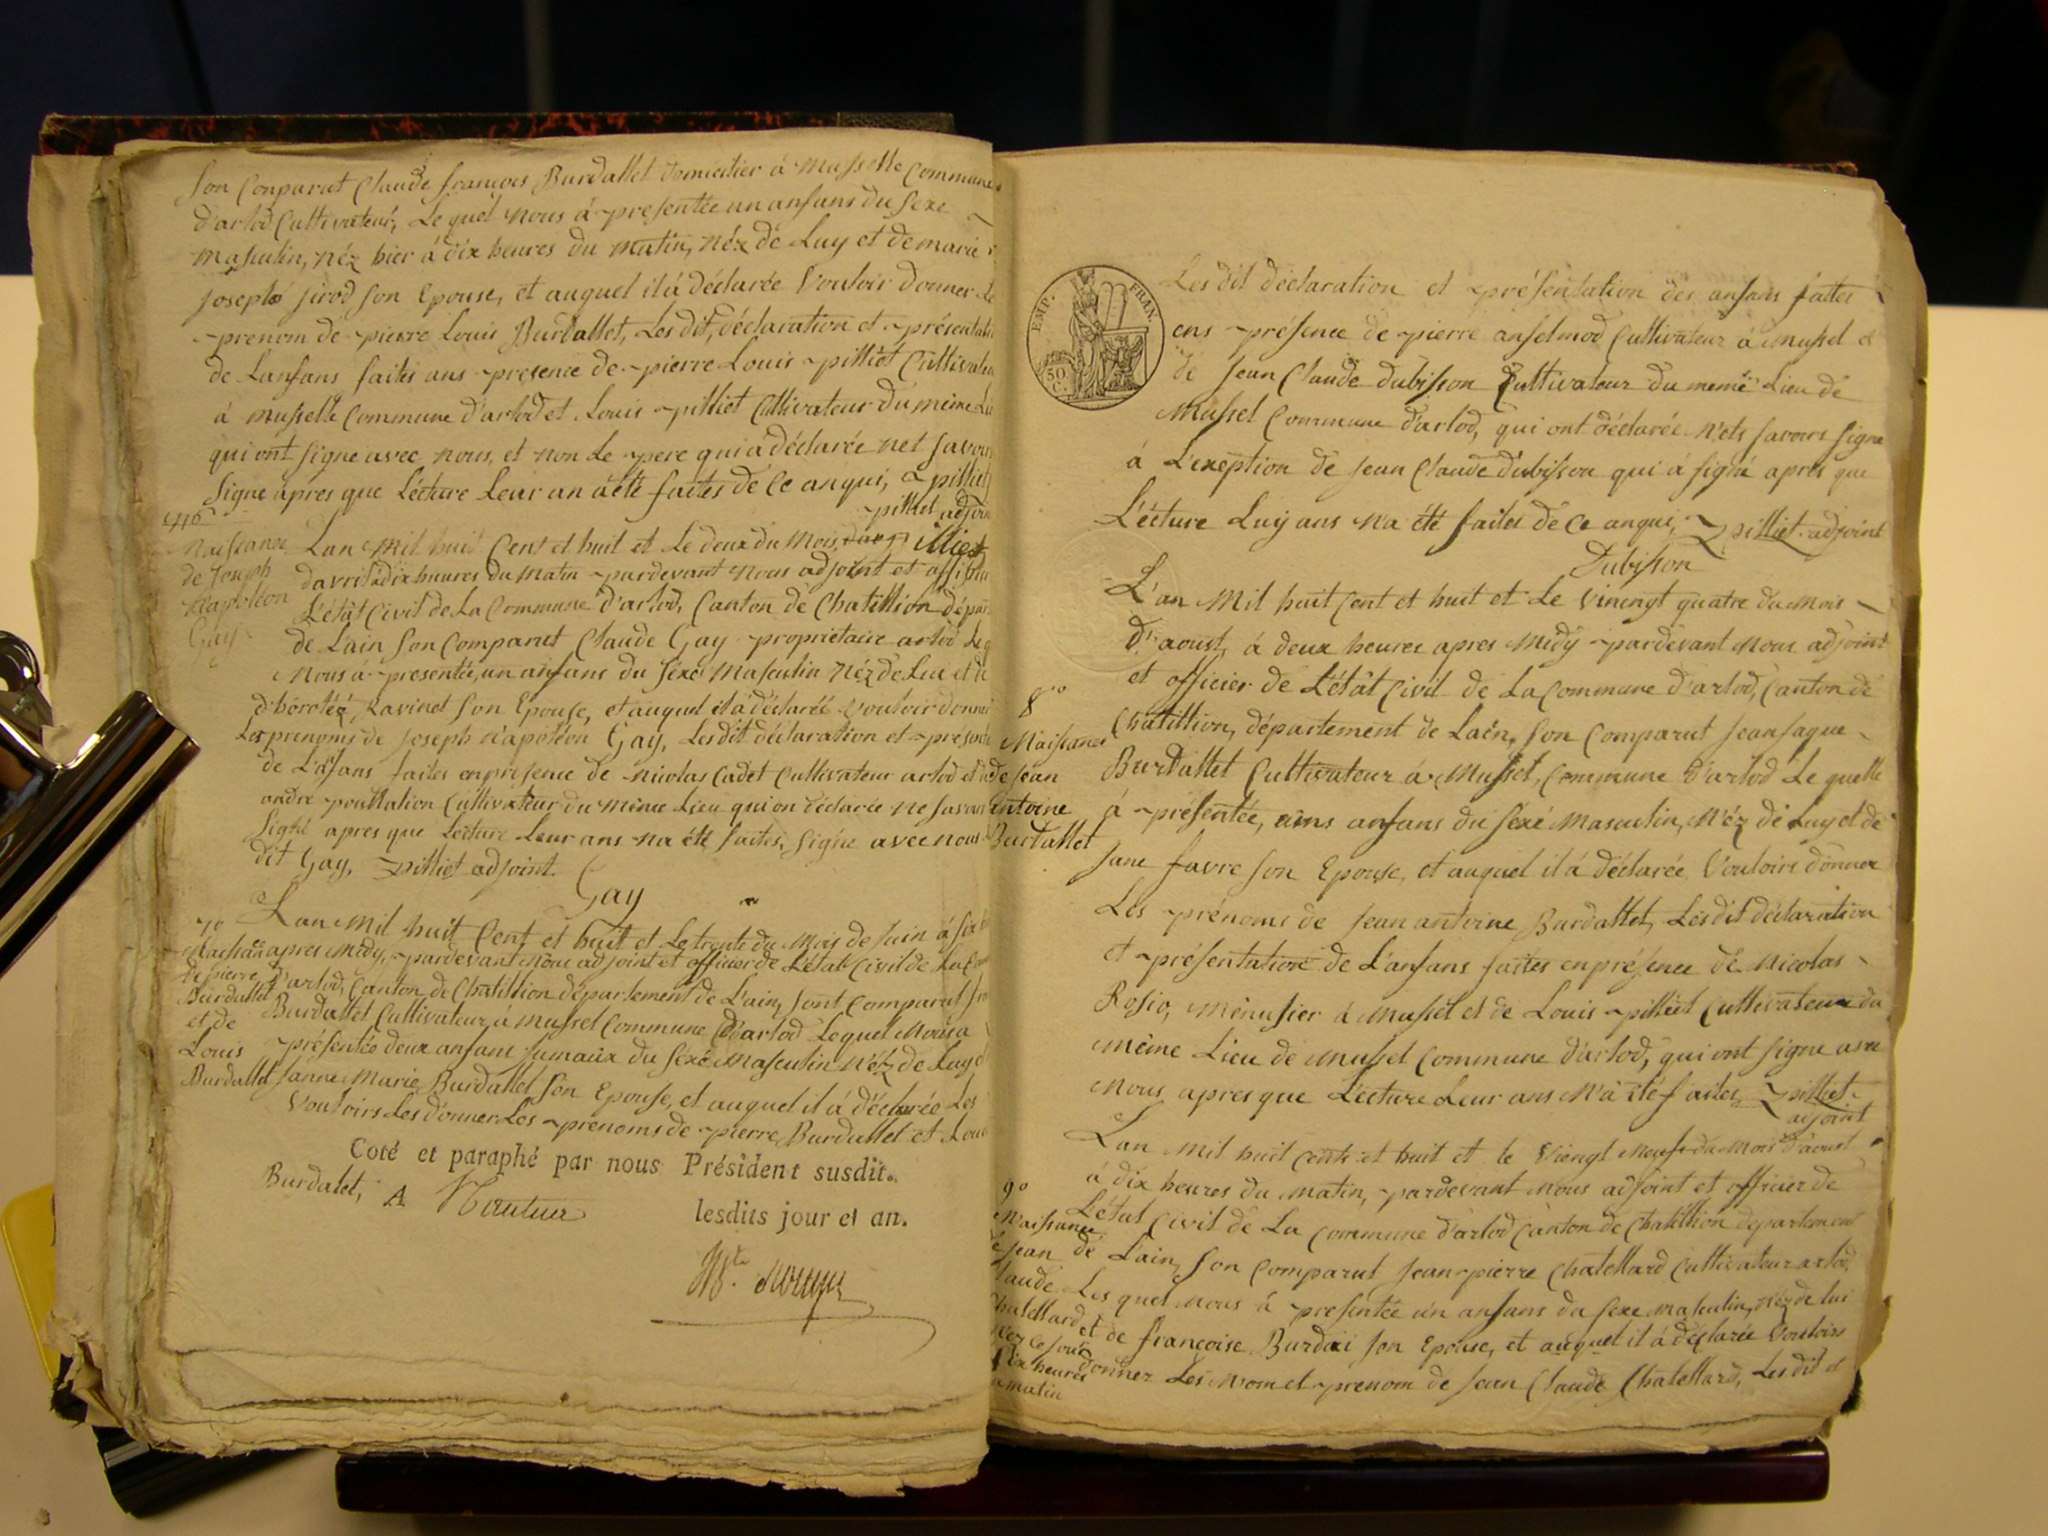 son Conparut Claude françois Burdallet domicilier à Musselle Commune
d'arlod Cultivateur, Le quel nous á presentée un anfans du Sexe
masculin, néz hier á dix heures du matin, néz de Luy et de marie
josepte jirod son Epouse, et auquel il á déclarée Vouloir donner Le
prenom de pierre Louis Burdallet, Les dit, déclaration et présentati
de Lanfans faites ans presence de pierre Louis pilliet Cultivateu
á musselle Commune d'arlod et Louis pilliet Cultivateur du même Lie
qui ont signe avec nous, et non Le pere qui á déclarée net savoir
signe apres que Lécture Leur an áété faites de Ce anqui, pilliet
pilliet adjoin
Naissance
de Joseph
Napoléon
Gay
Lan Mil huit Cent et huit et Le deux du Mois
davril á dix heures du matin pardevant nous adjoint et officie
L'état Civil de La Commune d'arlod, Canton de Chatillion dépar
de Lain son Comparut Claude Gay propriétaire arlod Leq
Nous á presentée, un anfans du séxe Masculin Néz de Lui et de
d'horotéé, Ravinet son Epouse, et auquel il á déclarée vouloir donner
Les prenoms de Joseph Napoléon Gay, Lesdit déclaration et présent
de L'afans faites enpresence de Nicolas Cadet Cultivateur arlod et d
andre pouttation Cultivateur du même Lieu qui on déclarée ne savoir
Signé apres que Lécture Leur ans na été faites, signe avec nous
dit Gay, pilliet adjoint.
Gay
7º
Naissan
de pierre
Burdallet
et de
Louis
Burdallet
Lan Mil huit Cent et huit et Le trente du Mois de Juin á six
apres Midy, pardevant Nous adjoint et officier de L'état Civil de La Com
D'arlod, Canton de Chatillion département de L'ain, sont Comparut
Burdallet Cultivateur á Mussel Commune D'arlod Lequel Nous a
présentée deux anfans jumaux du séxe Masculin Néz de Luy
Janne Marie Burdallet son Epouse, et auquel il á déclarée Les
Vouloirs Les donner Les prenoms de pierre Burdallet et Loui
Coté et paraphé par nous Président susdit.
Burdalet, A
lesdits jour et an.
EMP. FRAN.
50
C.
Les dit déclaration et présentation des anfans faites
ens présence de pierre anselmod Cultivateur á Mussel et
de Jean Claude Dubisson Cultivateur du meme Lieu de
Mussel Commune d'arlod, qui ont déclarée Nets savoirs signe
á L'exeption de Jean Claude dubisson qui á signé apres que
L'écture Luy ans Na été faites de Ce anqui, pilliet adjoint
Dubisson
8º
Naissance
de Jéan
antoine
Burdallet
L'an Mil huit Cent et huit et Le Vinengt quatre du Mois
D'aoust, á deux heures apres Midy pardevant Nous adjoint
et officier de L'étât Civil de La Commune D'arlod, Canton de
Chatillion, département de Laén, son Comparut Jean jaque
Burdallet Cultivateur á Mussel, Commune D'arlod Le quelle
á présentée, uns anfans du séxé Masculin, Néz de Luy et de
Jane favre son Epouse, et auquel il á déclarée Vouloirs donner
Les prénoms de Jean antoine Burdallet, Lesdit déclaration
et présentation de L'anfans faites enprésence de Nicolas
Rosio, Menusier á Mussel et de Louis pilliet Cultivateur du
même Lieu de Mussel Commune d'arlod, qui ont signe avec
Nous apres que L'écture Leur ans N'á été faites, pilliet
adjoint
9º
Naissance
de Jean
laude
Chatellard
néz Ce jour
dix heures
u matin
Lan Mil huit Cents et huit et le Viengt Neuf du Mois D'aoust
á dix heures du Matin, pardevant Nous adjoint et officier de
L'état Civil de La Commune d'arlod Canton de Chatillion département
de L'ain, son Comparut Jean pierre Chatellard Cultivateur arlod,
Les quel Nous á presentée un anfans du sexe masculin, Néz de lui
et de françoise Burdai son Epouse, et auquel il á déclarée Vouloirs
donner Les Nom et prenom de Jean Claude Chatellard, Les dit et